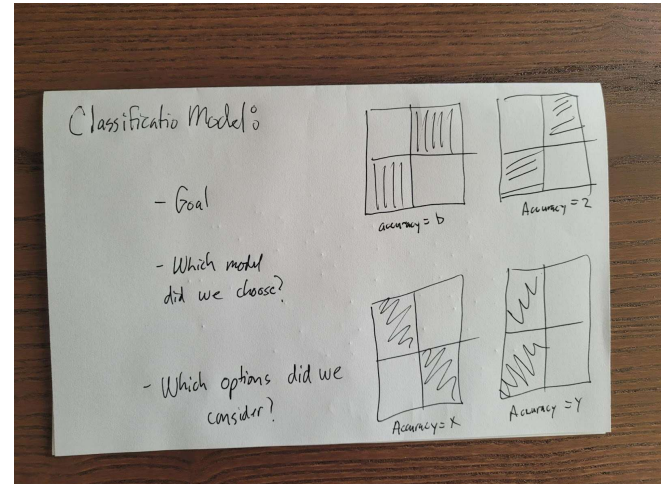 Classificatio Model:
- Goal
- Which model
did we choose?
- Which options did we
consider?
accuracy = b
Accuracy = 2
Accuracy = X
Accuracy = Y